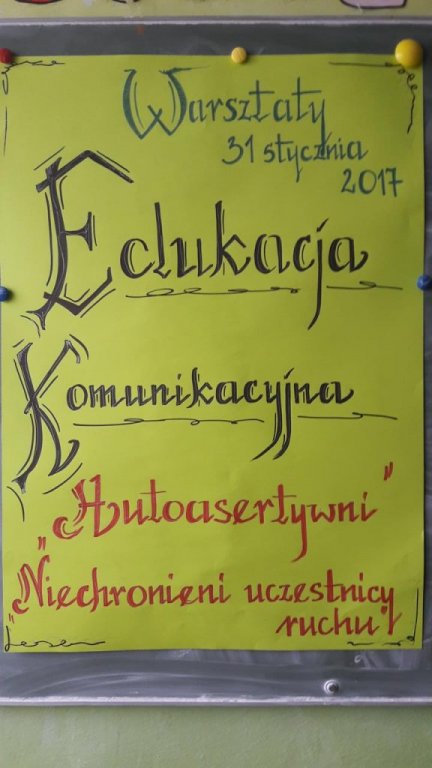 Warsztaty
31 stycznia
2017
Edukacja
Komunikacyjna
„Autoasertywni"
„Niechronieni uczestnicy
ruchu"